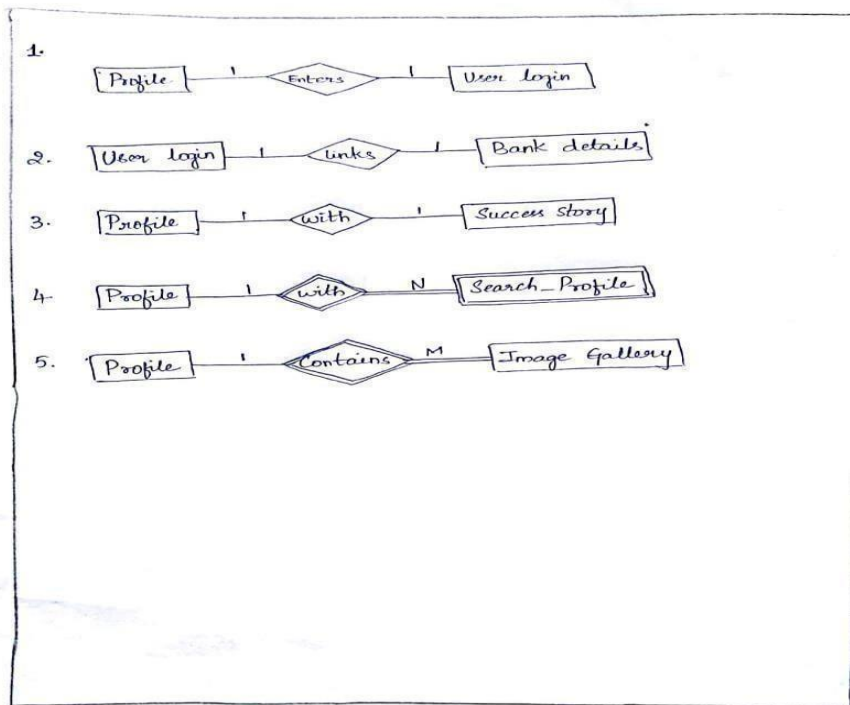 1.
Profile 1 Enters 1 User login
2. User login 1 Links 1 Bank details
3. Profile 1 with 1 Success Story
4. Profile 1 with N Search_Profile
5. Profile 1 Contains M Image Gallery